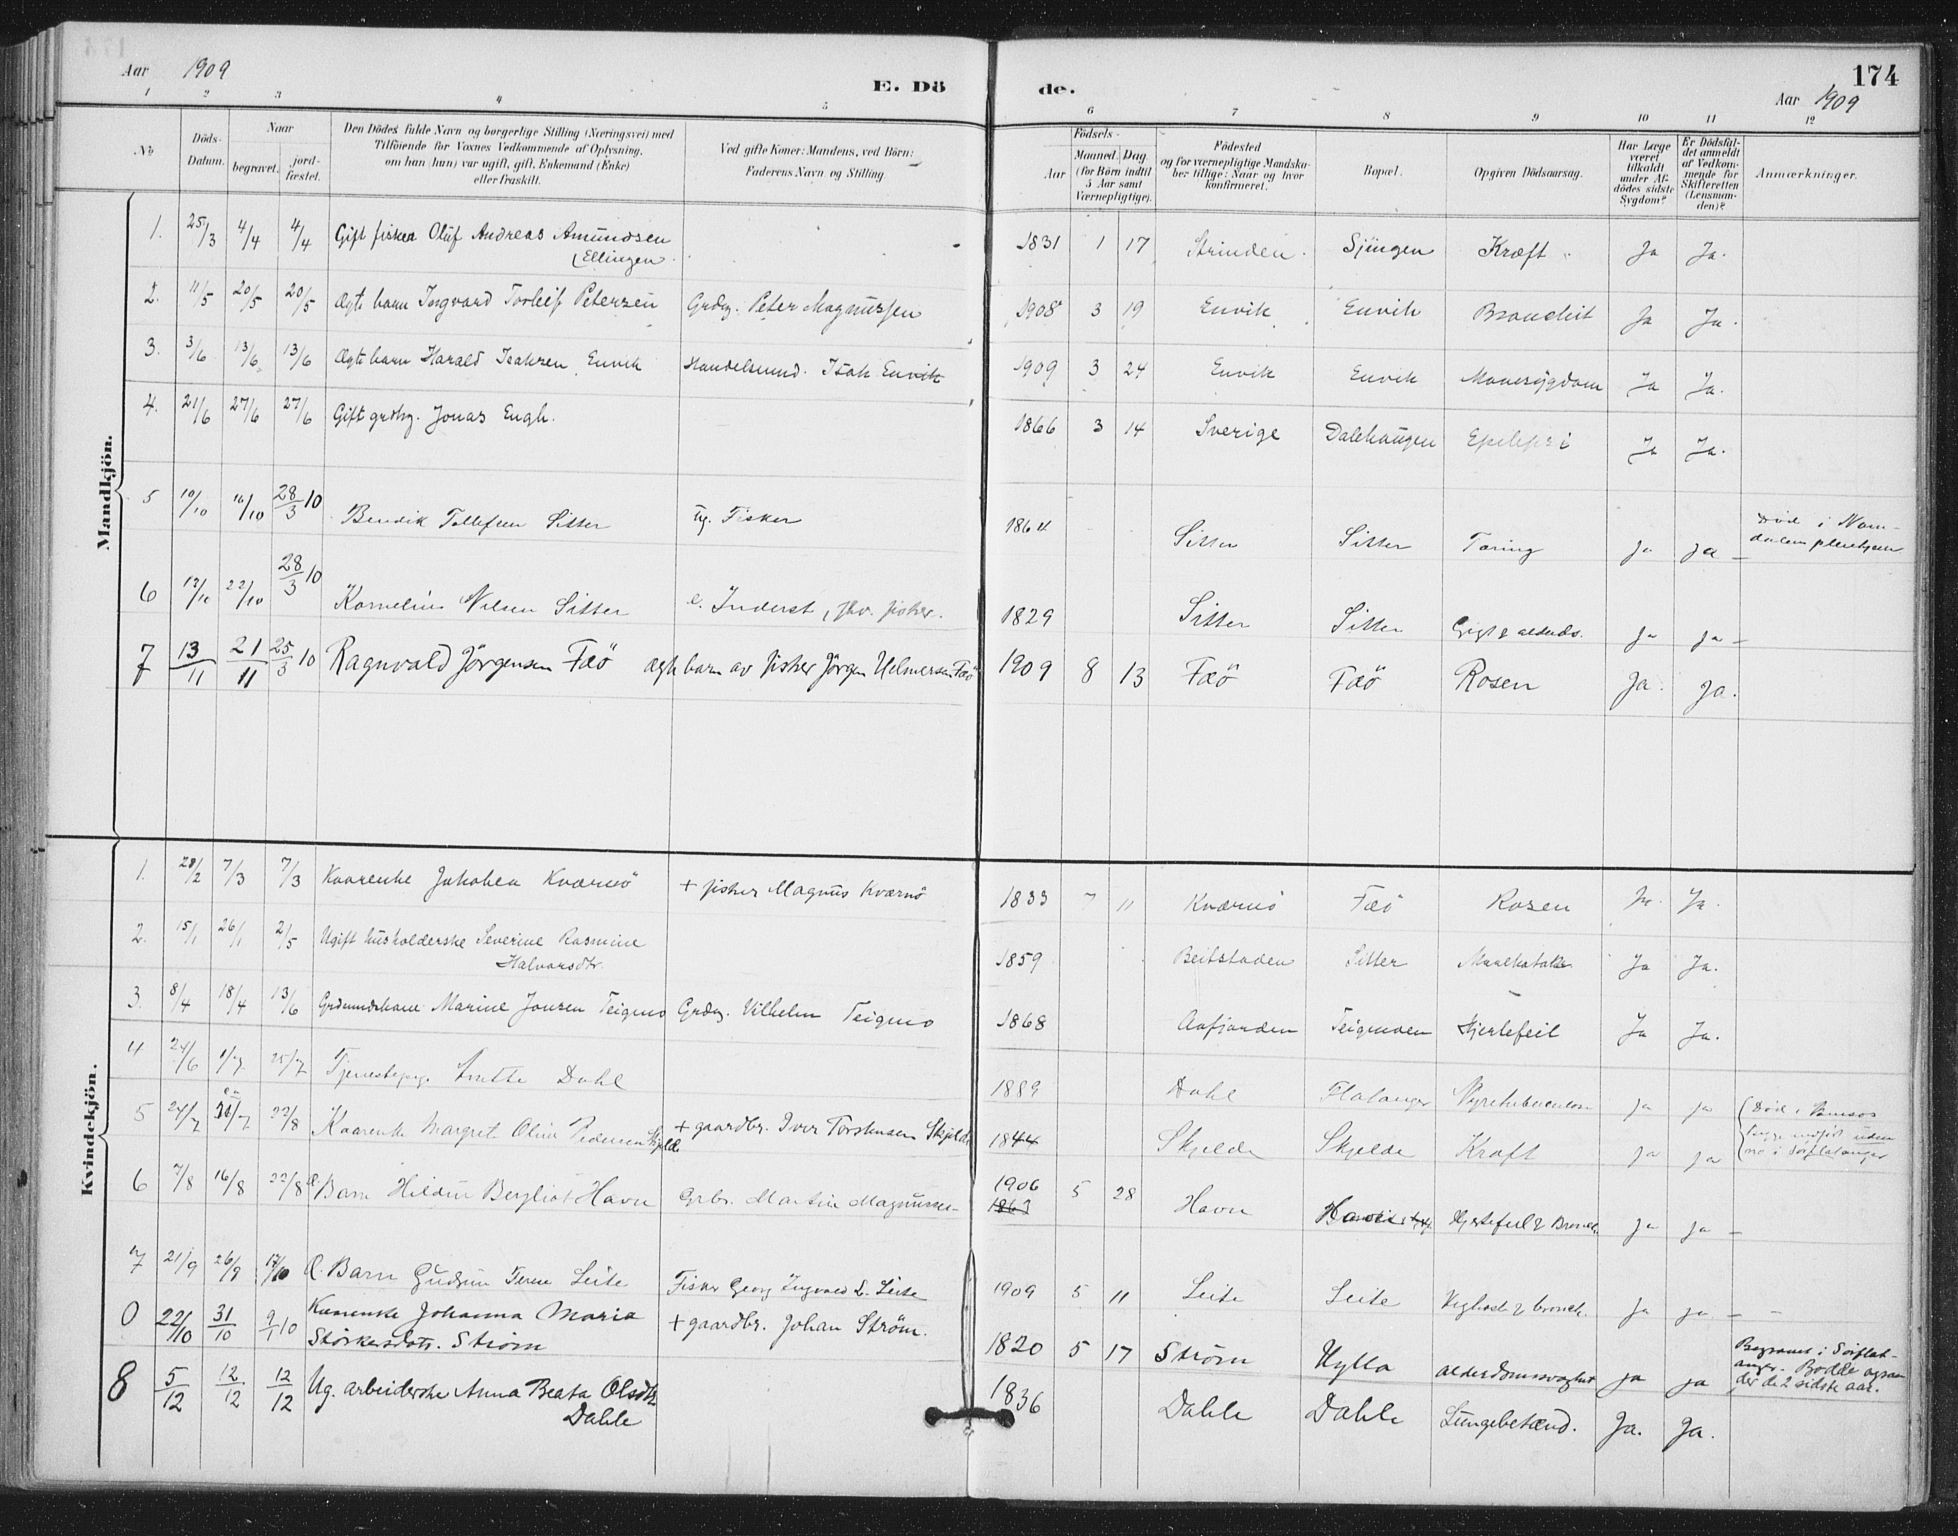 Aar 1909
E. Dö
de.
174
Aar 1909
1 2 3 4 5 6 7 8 9 10 11 12
No
Döds-Datum.
Naar
begravet.
jord-fæstet.
Den Dödes fulde Navn og borgerlige Stilling (Næringsvei) med
Tilföiende for Voxnes Vedkommende af Oplysning,
om han (hun) var ugift, gift, Enkemand (Enke)
eller fraskilt.
Ved gifte Koner: Mandens, ved Börn:
Faderens Navn og Stilling.
Födsels-
Aar
Maaned. Dag
(for Börn indtil
5 Aar samt
Værnepligtige).
Födested
og for værnepligtige Mandska-
ber tillige: Naar og hvor
konfirmeret.
Bopæl.
Opgiven Dödsaarsag.
Har Læge
været
tilkaldt
under Af-
dödes sidste
Sygdom?
Er Dödsfal-
det anmeldt
af Vedkom-
mende for
Skifteretten
(Lensman-
den)?
Anmærkninger.
Mandkjön.
1. 25/3 4/4 4/4 Gift fisker Oluf Andreas Amundsen 1831 1 17 Strinden. Sjüngen Kræft Ja Ja.
(Ellingen.
2. 11/5 20/5 20/5 Ægte barn Ingvard Torleif Petersen Grdbg. Peter Magnussen 1908 3 19 Euvik Euvik Bronchit Ja Ja.
3. 3/6 13/6 13/6 Ægte barn Harald Isaksen Euvik Handelsmand. Isak Euvik 1909 3 24 Euvik Euvik Mavesygdom Ja Ja.
4. 21/6 27/6 27/6 Gift grdbg. Jonas Engh. 1866 3 14 Sverige Dalehaugen Epilepsi Ja Ja.
5 10/10 16/10 28/3 10 Bendik Tollefsen Sitter ug. Fisker 1864 Sitter Sitter Tæring Ja ja Död i Nam-
dalens pleiehjem
6 22/10 28/3 10 Kornelius Nilsen Sitter e. Inderst, fhv. fisker. 1829 Sitter Sitter Gigt & alderds. ja ja
7 13/11 21/11 25/3 10 Ragnvald Jörgensen Fæö ægte barn av fisker Jörgen Helmersen Fæö 1909 8 13 Fæö Fæö Rosen Ja. Ja.
Kvindekjön.
1. 28/2 7/3 7/3 Kaarenke Jakobea Kværnö + fisker Magnus Kværnö 1833 7 11 Kværnö Fæö Rosen Ja. Ja.
2. 15/1 26/1 2/5 Ugift husholderske Severine Rasmine 1859 Beitstaden Sitter Ja Ja.
Halvorsdtr.
3. 8/4 18/4 13/6 Grdmandskone Marine Jonsen Teigmo Grdbg. Vilhelm Teigmo 1868 Aafjorden Teigmoen Hjertefeil Ja Ja.
4 24/6 1/7 25/7 Tjenestepige. Dahl 1889 Dahl Flatanger ja ja (Död i Namsos
5 24/7 22/8 Kaarenke Margret Olina Pedersen Skjeld + gaardbr. Iver Torstensen Skjelde 1844 Skjelde Skjelde Kræft ja ja
6 7/8 16/8 22/8 Æ Barn Bergliot Havn Grbr. Martin Magnussen 1906 1863 5 28 Havn Hjertefeil & Bronch. ja ja
7 21/9 26/9 17/10 Æ. Barn Gudrun Leite Fisker Georg Ingvard L. Leite 1909 5 11 Leite Leite Kighoste & bronch. ja ja
0 22/10 31/10 9/1 10 Kaarenke Johanna Maria + gaardbr. Johan Ström. 1820 5 17 Ström Hylla alderdomssvaghet ja ja Begravet i Sörflat-
Störkersdatr. Ström
anger. Bodde ogsaa
der de 2 sidste aar.
8 5/12 12/12 12/12 Ug. arbeiderske Anna Beata Olsdtr. 1836 Dahle Dahle Lungebetænd. Ja. Ja.
Dahle